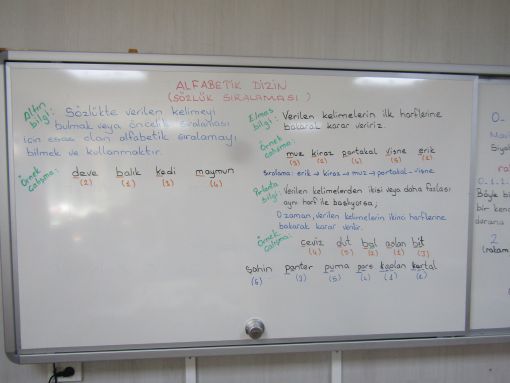 ALFABETİK DİZİN
(SÖZLÜK SIRALAMASI)
Altın bilgi: Sözlükte verilen kelimeyi
bulmak veya öncelik sıralaması
için esas olan alfabetik sıralamayı
bilmek ve kullanmaktır.
Örnek çalışma: deve balık kedi maymun
(2) (1) (3) (4)
Elmas bilgi: Verilen kelimelerin ilk harflerine
bakarak karar veririz.
Örnek çalışma:
muz kiraz portakal vişne erik
(3) (2) (4) (5) (1)
Sıralama: erik → kiraz → muz → portakal → vişne
Pırlanta bilgi: Verilen kelimelerden ikisi veya daha fazlası
aynı harf ile başlıyorsa;
O zaman, verilen kelimelerin ikinci harflerine
bakarak karar verilir.
Örnek çalışma:
ceviz dut bal aslan bit
(4) (5) (2) (1) (3)
şahin panter puma pars kaplan kartal
(6) (3) (5) (4) (1) (2)
0-
0-1-2
Böyle bi
bir kena
duruma
2
(rakam